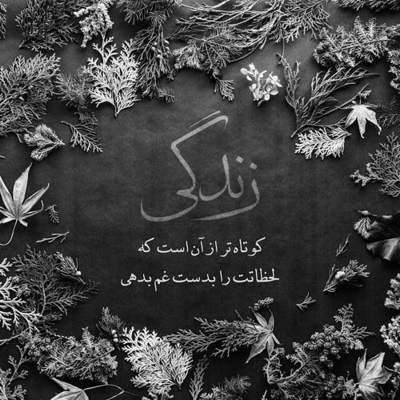 زندگی
کوتاه‌تر از آن است که
لحظاتت را بدست غم بدهی